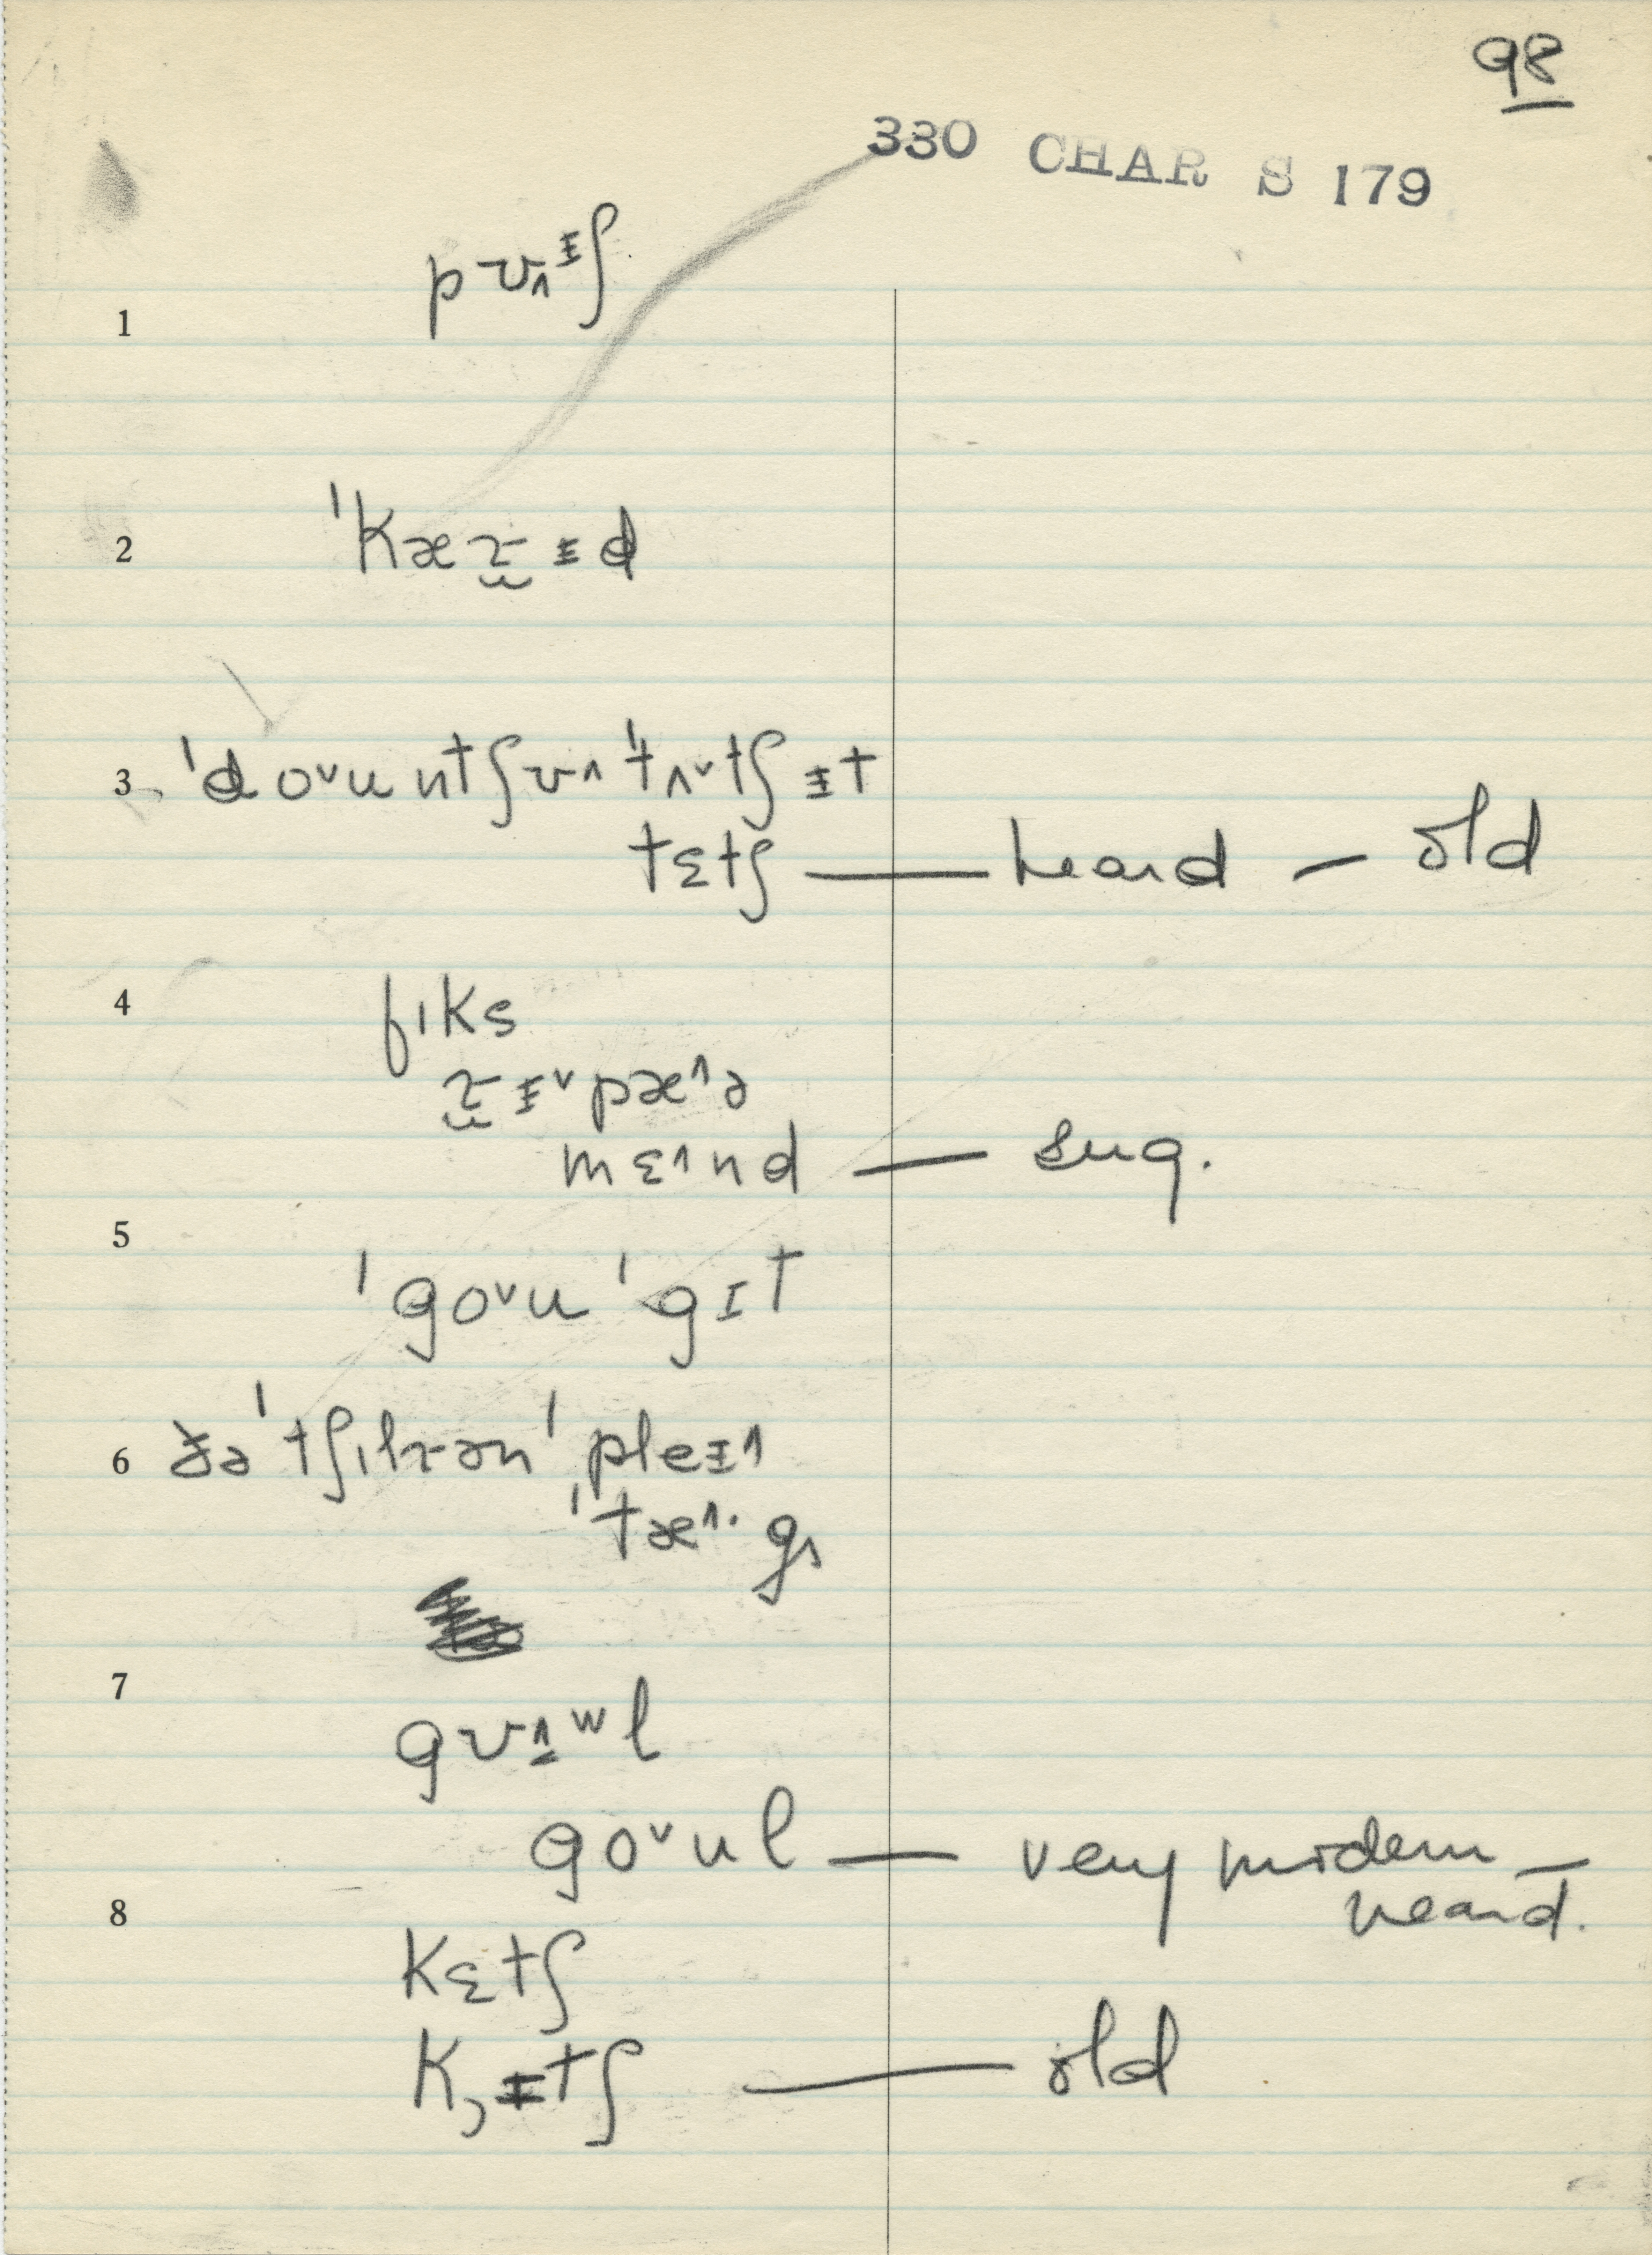 98
330 CHAR S 179
1 pʊ˄ᵻʃ
2 ˈkæɾ̬ᵻd
3 ˈdo˅untʃʊ˄ˈtʌ˅tʃᵻt
tɛtʃ — heard — old
4 fɪks
ɾ̬ᵻ˅pæ˄ə
mɛ˄nd — sug.
5
ˈgo˅uˈgɪt
6 ðəˈtʃɪlɾənˈpleᵻ˄
ˈtæ˄·g
7
gʊ˄ʷl
go˅ul — very modern —
heard.
8
kɛtʃ
k̦ᵻtʃ — old